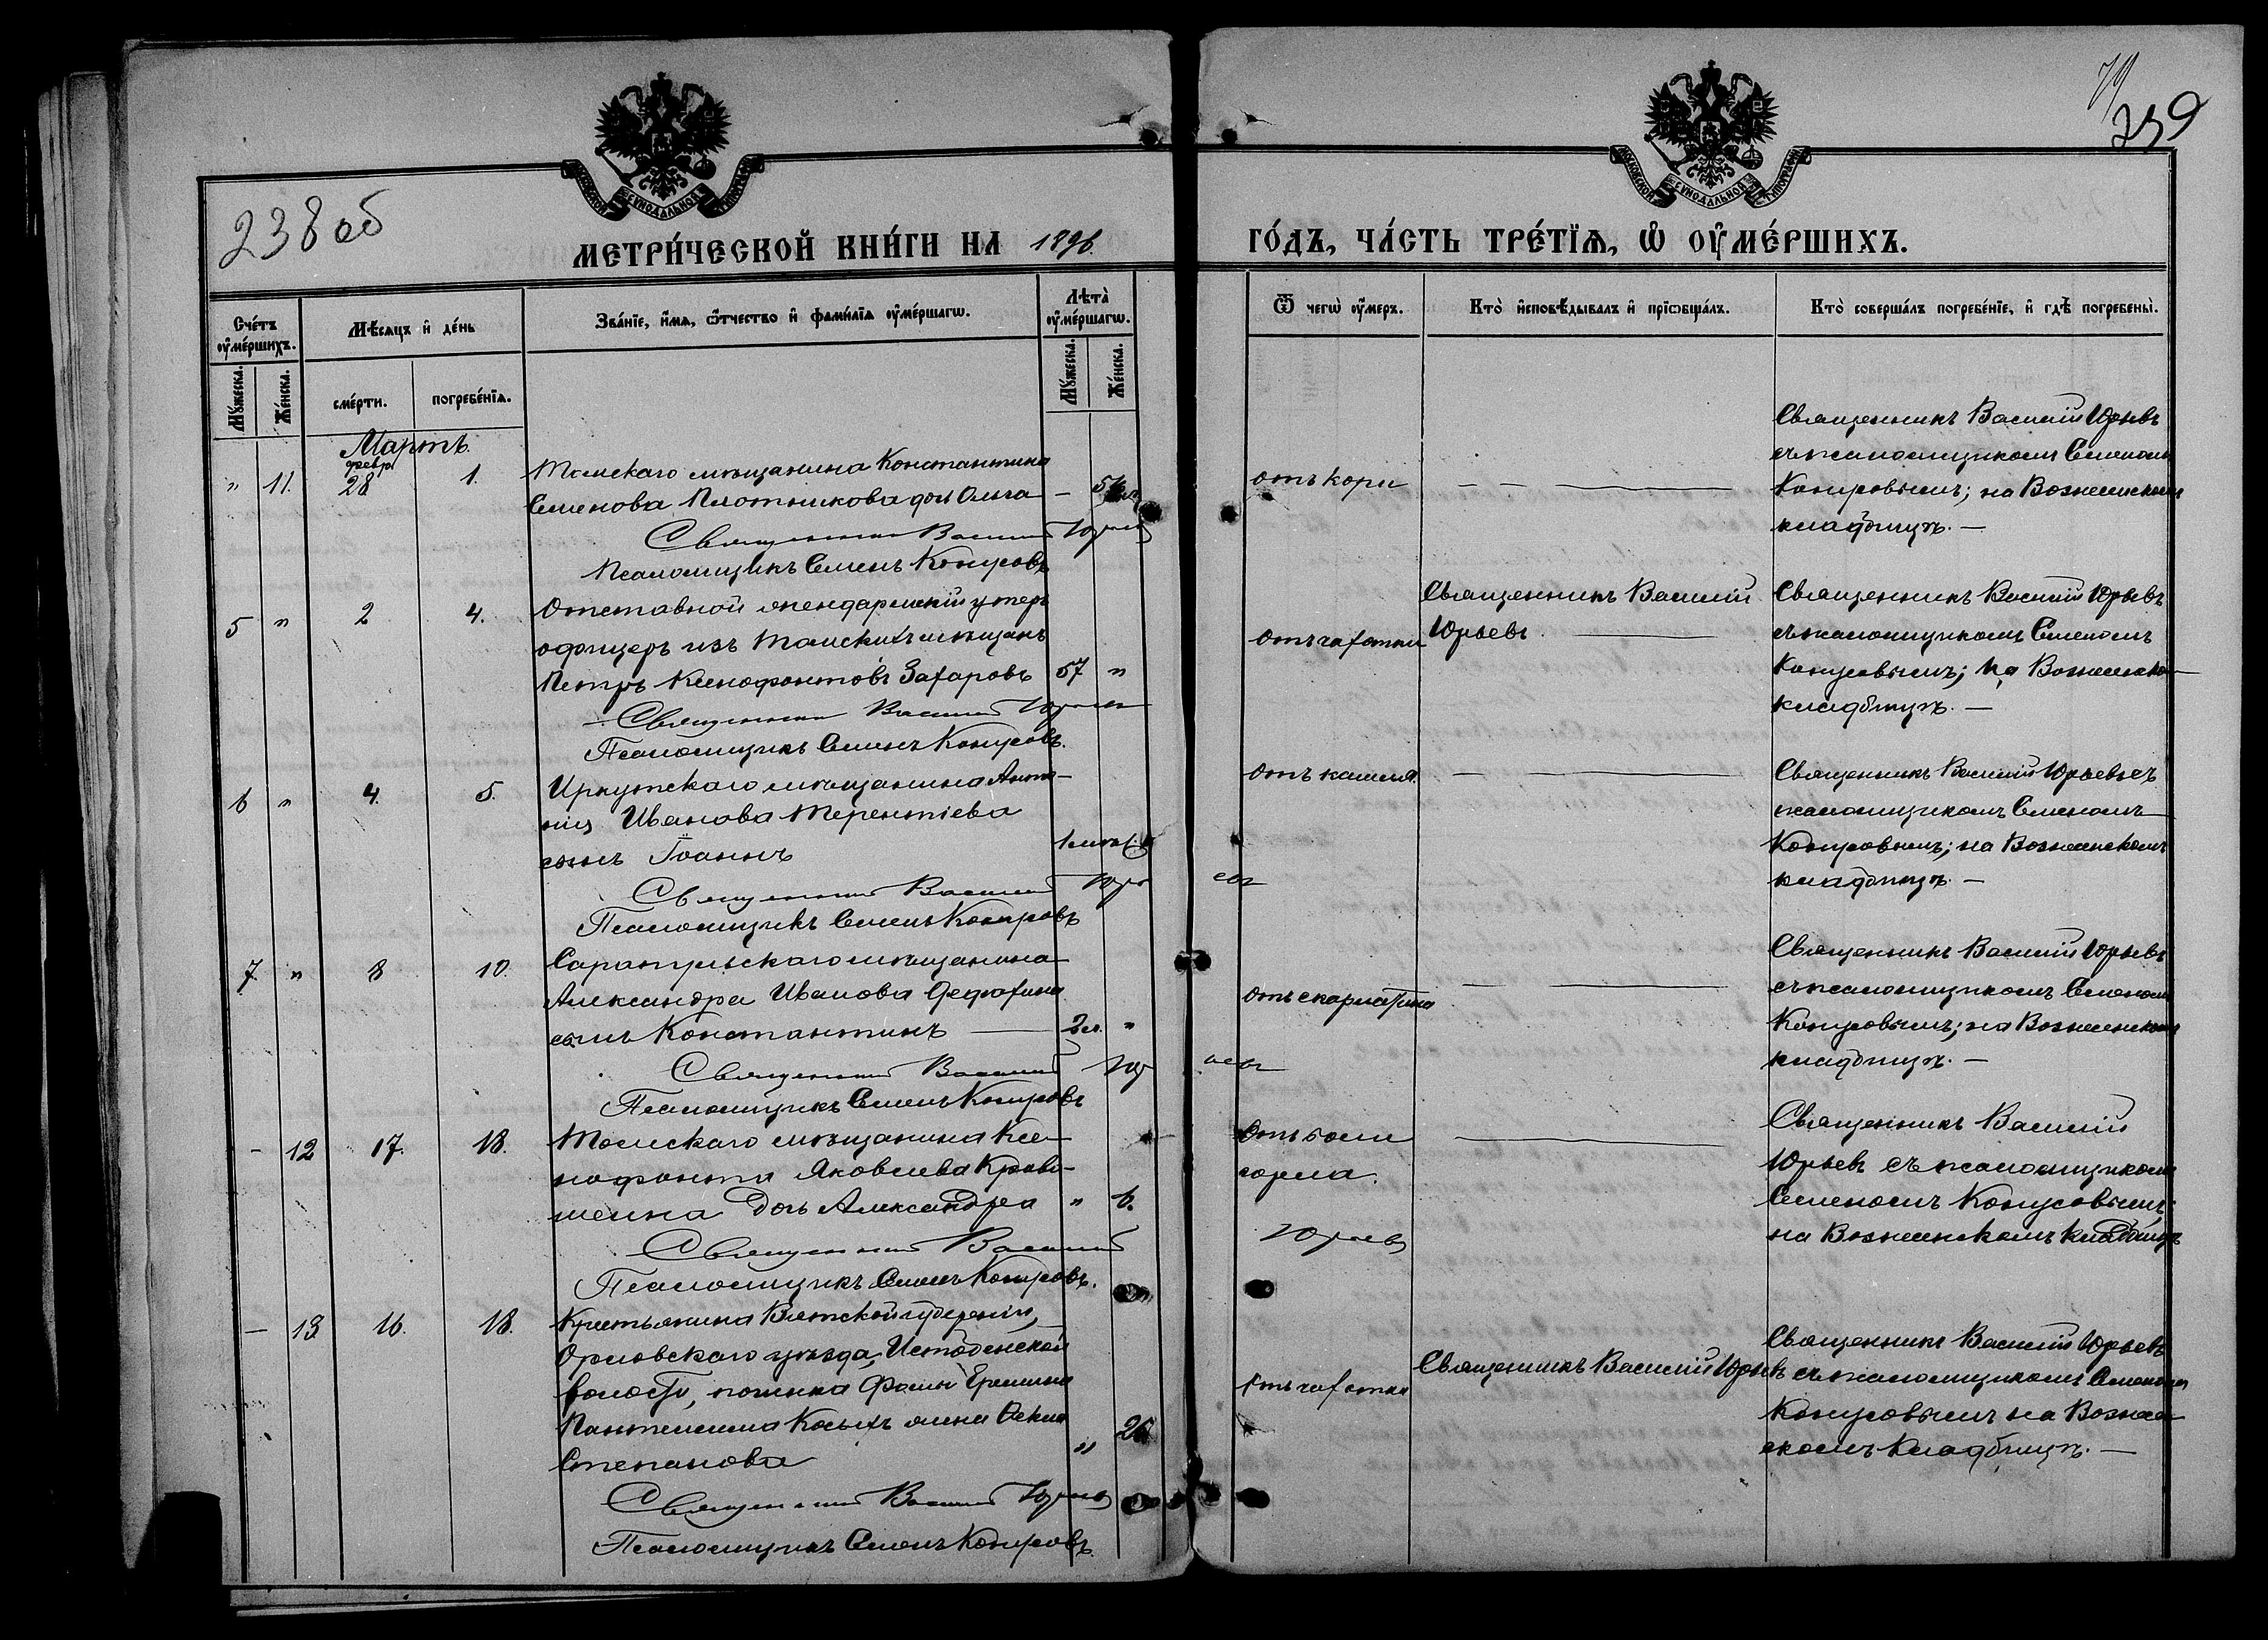 238 об
79
239
МОСКОВСКОЙ СѴНОДАЛЬНОЙ ТИПОГРАФІИ
МОСКОВСКОЙ СѴНОДАЛЬНОЙ ТИПОГРАФІИ
МЕТРИ́ЧЕСКОЙ КНИ́ГИ НА 1896. ГО́ДЪ, ЧА́СТЬ ТРЕ́ТЇѦ, Ѡ҆ ОУ҆МЕ́РШИХЪ.
Сче́тъ оу҆ме́ршихъ.
Мѣ́сяцъ и҆ де́нь
Зва́нїе, и҆́мѧ, ѻ҆́тчество и҆ фами́лїѧ оу҆ме́ршагѡ.
Лѣта̀ оу҆ме́ршагѡ.
Ѿ чегѡ̀ оу҆́меръ.
Кто̀ и҆сповѣ́дывалъ и҆ прїѡбща́лъ.
Кто̀ соверша́лъ погребе́нїе, и҆ гдѣ̀ погребены̀.
Мꙋ́жеска.
Же́нска.
сме́рти.
погребе́нїѧ.
Мꙋ́жеска.
Же́нска.
Мартъ.
" 11. февр. 28 1.
Томскаго мѣщанина Константина
Семенова Плотникова дочь Ольга —
Священникъ Василій Юрьевъ
Псаломщикъ Семенъ Копусовъ
отъ кори
Священникъ Василій Юрьевъ
съ псаломщикомъ Семеномъ
Копусовымъ; на Вознесенскомъ
кладбищѣ. —
5 " 2 4.
Отставной жендармскій унтеръ
офицеръ изъ Томскихъ мѣщанъ
Петръ Ксенофонтовъ Захаровъ 57 "
Священникъ Василій Юрьевъ
Псаломщикъ Семенъ Копусовъ.
отъ чахотки
Священникъ Василій
Юрьевъ.
Священникъ Василій Юрьевъ
съ псаломщикомъ Семеномъ
Копусовымъ; на Вознесенско
кладбищѣ. —
6 " 4. 5.
Иркутскаго мѣщанина Анто-
нія Иванова Терентіева
сынъ Іоаннъ
Священникъ Василій Юрьевъ
Псаломщикъ Семенъ Копусовъ
отъ кашля.
Священникъ Василій Юрьевъ съ
псаломщикомъ Семеномъ
Копусовымъ; на Вознесенскомъ
кладбищѣ. —
7 " 8 10.
Сарапульскаго мѣщанина
Александра Иванова
сынъ Константинъ — "
Священникъ Василій Юрьевъ
Псаломщикъ Семенъ Копусовъ
отъ скарлатина
Священникъ Василій Юрьевъ
съ псаломщикомъ Семеномъ
Копусовымъ; на Вознесенскомъ
кладбищѣ. —
- 12 17. 18.
Томскаго мѣщанина Ксе-
нофонта Яковлева
дочь Александра " 6.
Священникъ Василій Юрьевъ
Псаломщикъ Семенъ Копусовъ.
отъ боли
горла.
Священникъ Василій
Юрьевъ съ псаломщикомъ
Семеномъ Копусовымъ;
на Вознесенскомъ кладбищѣ
— 13 16. 18.
Крестьянина Вятской губерніи,
Орловскаго уѣзда, Истобенской
волости, починка Фомы Ершина
Пантелеима Косыхъ жена
Степанова " 26
Священникъ Василій Юрьевъ
Псаломщикъ Семенъ Копусовъ.
отъ чахотки
Священникъ Василій Юрьевъ
Священникъ Василій Юрьевъ
съ псаломщикомъ Семеномъ
Копусовымъ на Вознесен-
скомъ кладбищѣ. —